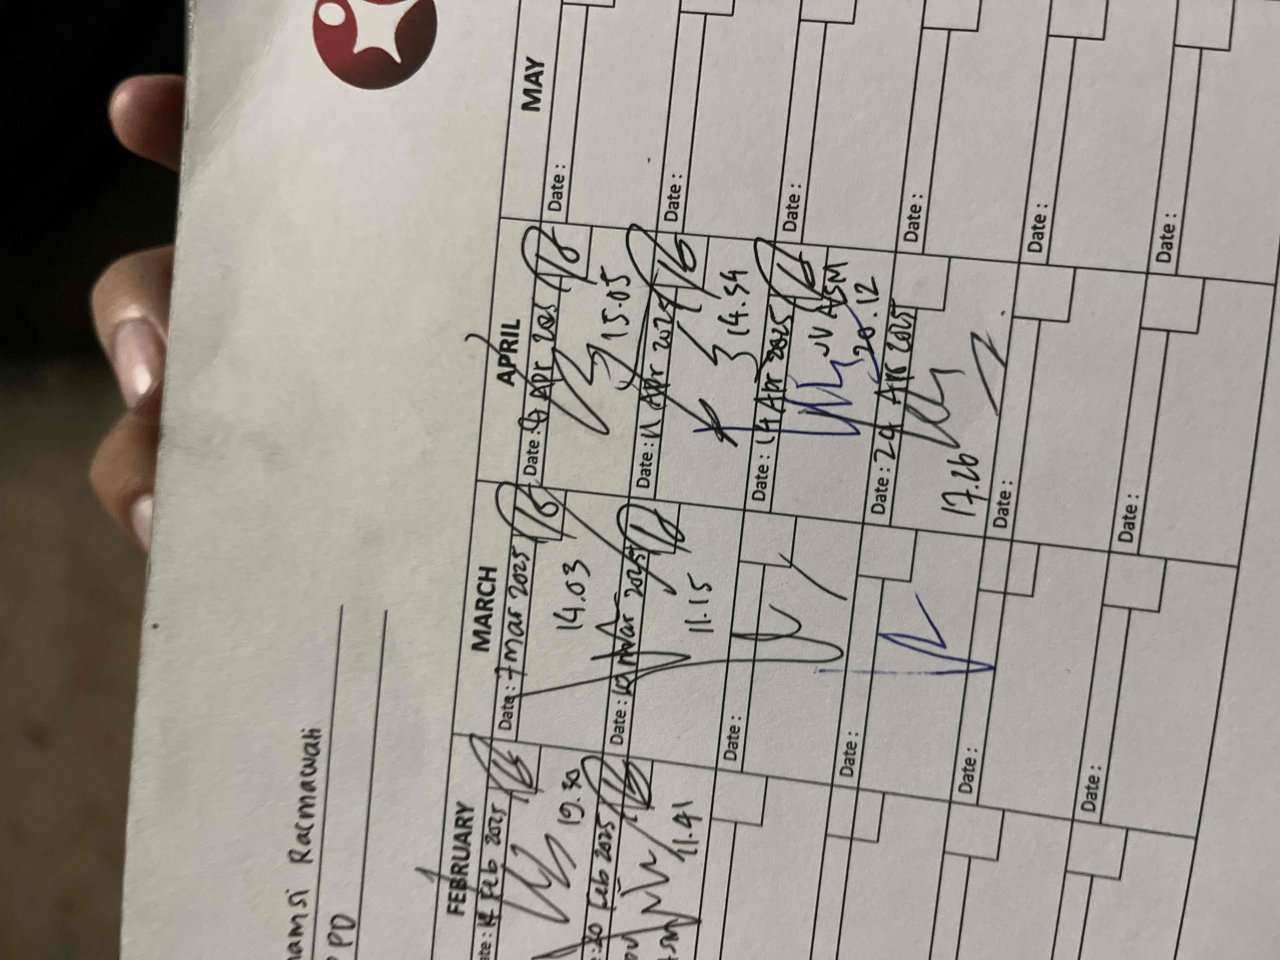 Racmawati
PD
FEBRUARY
Feb 2025
19.30
20 Feb 2025
11.41
MARCH
Date : 7 Mar 2025
14.03
Date : Mar 2025
11.15
Date :
Date :
Date :
Date :
APRIL
Date : Apr
15.05
Date : 11 Apr 2025
14.34
Date : 14 Apr 2025
JV ASM
20.12
Date : 24 Apr 2025
17.26
Date :
Date :
MAY
Date :
Date :
Date :
Date :
Date :
Date :